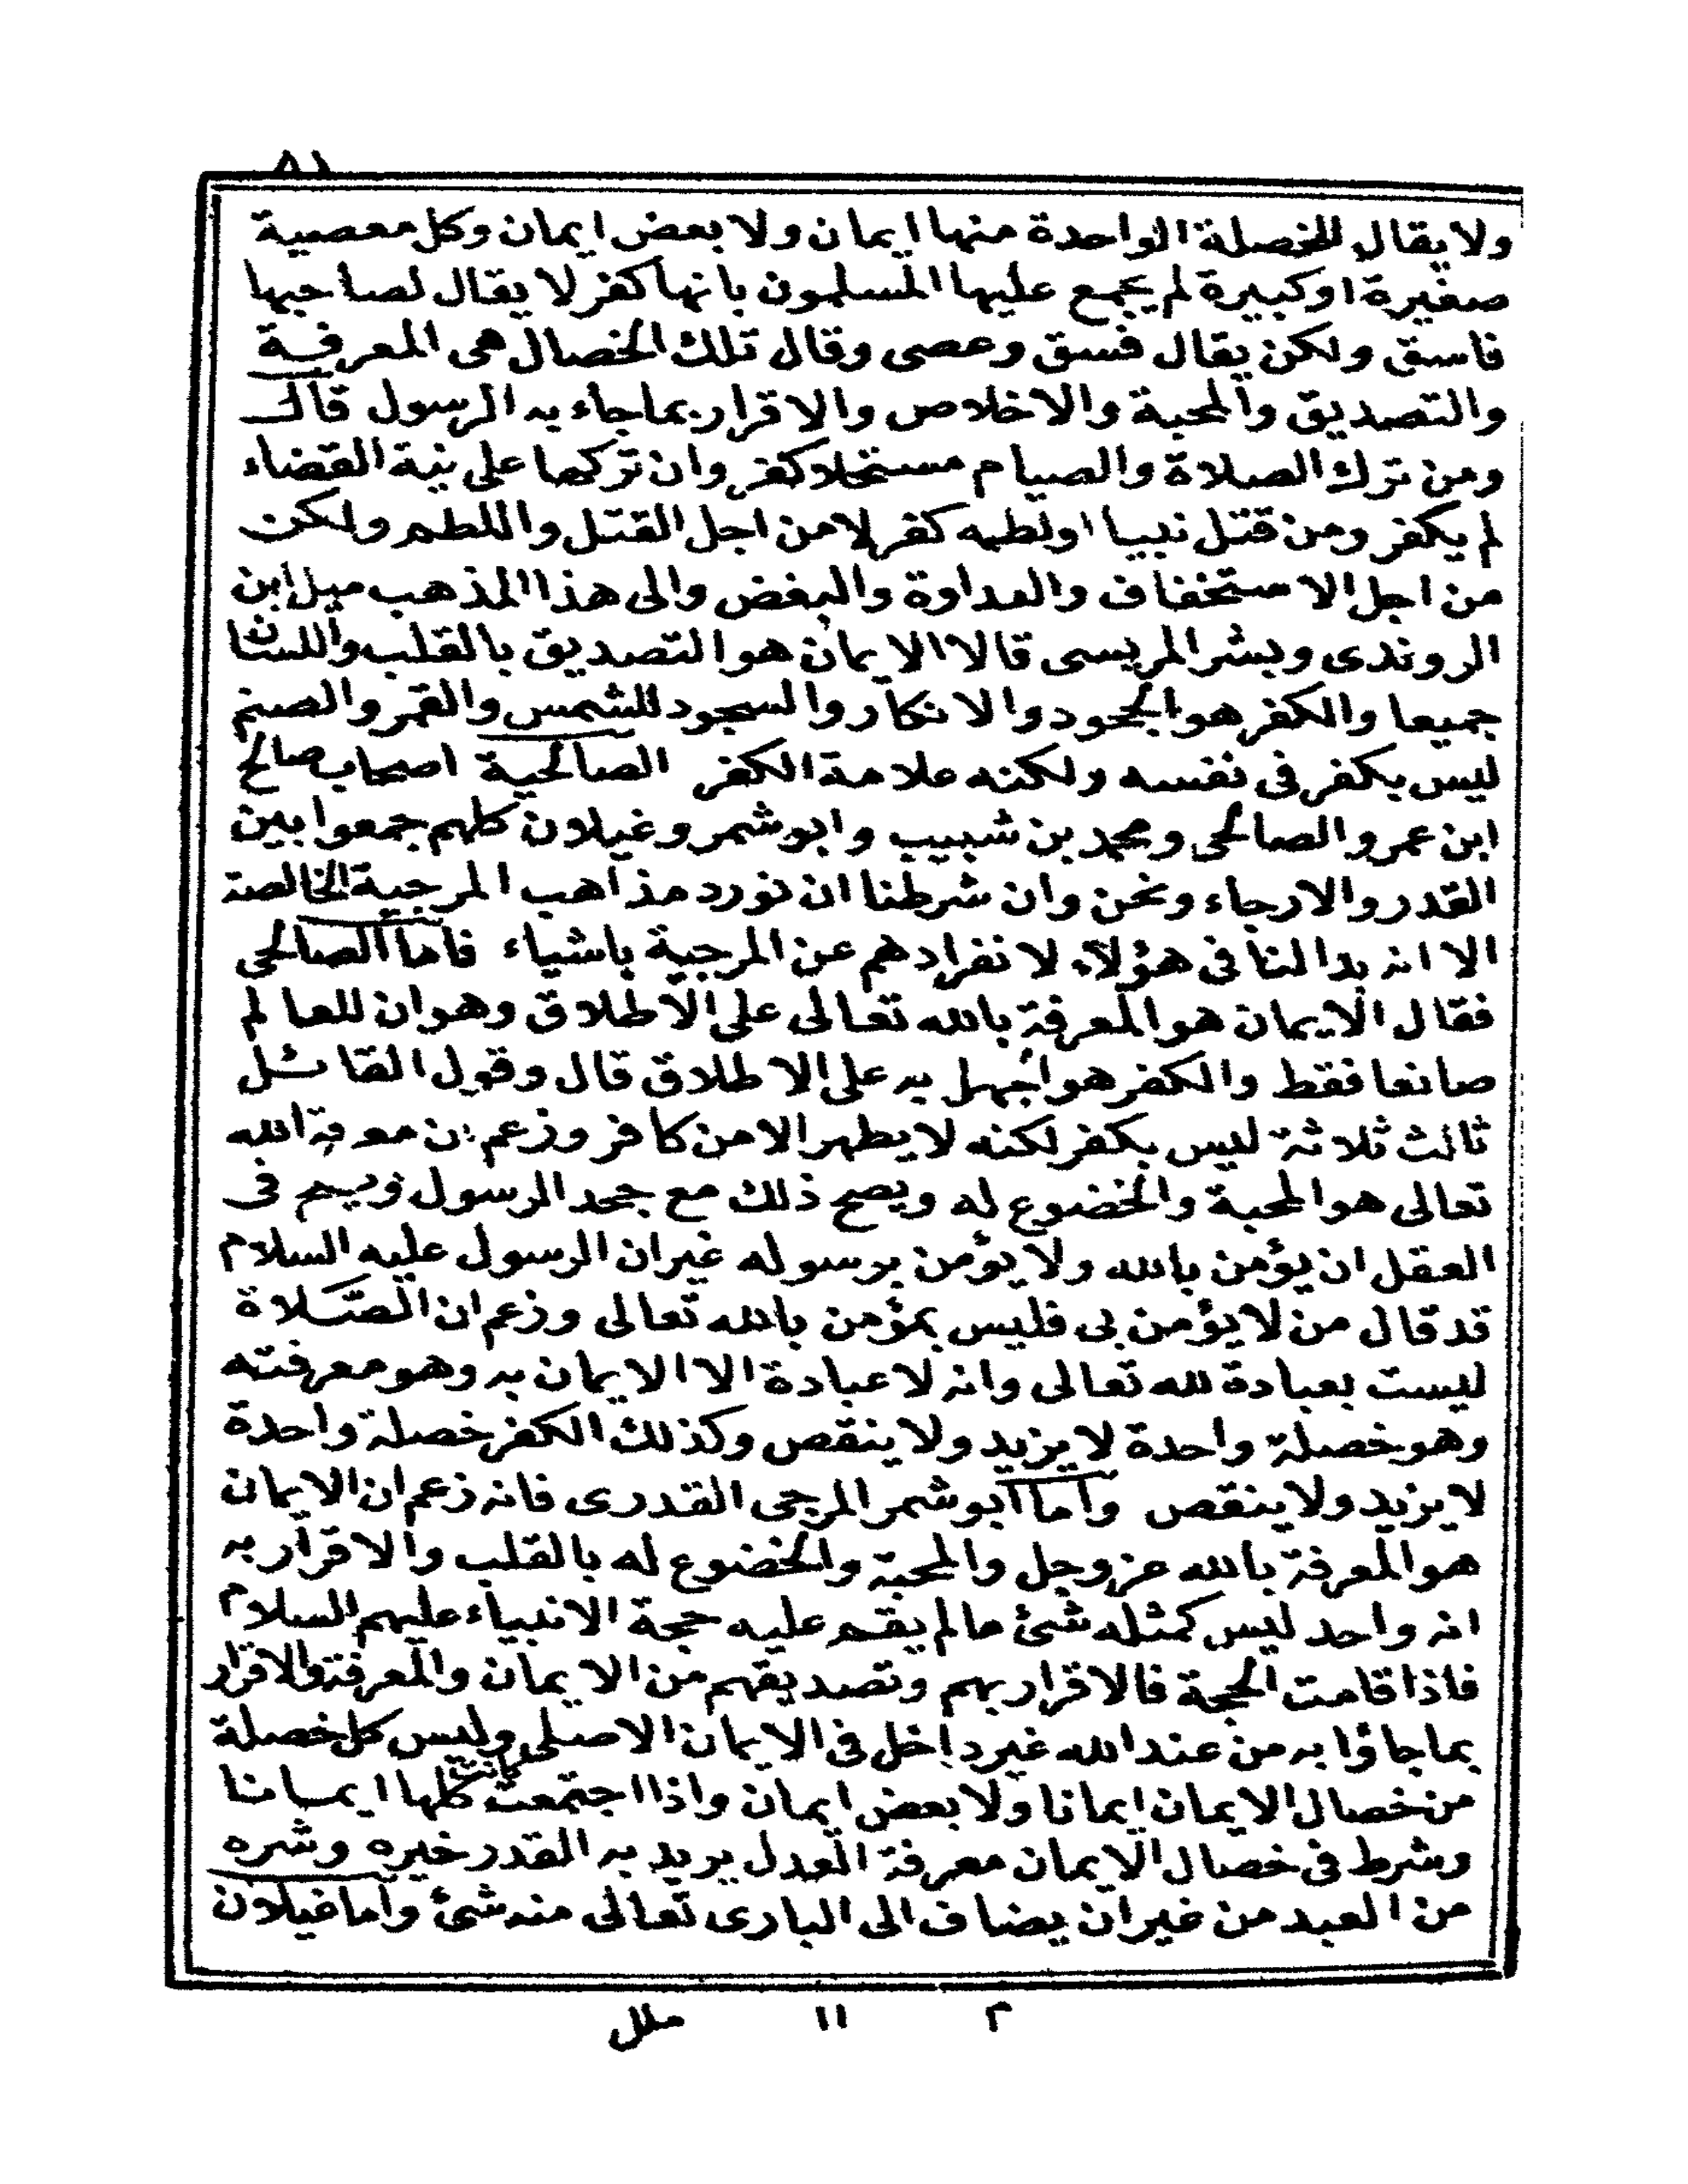 ٨١
ولا يقال للخصلة الواحدة منها ايمان ولا بعض ايمان وكل معصية
صغيرة او كبيرة لم يجمع عليها المسلمون بانها كفر لا يقال لصاحبها
فاسق ولكن يقال فسق وعصى وقال تلك الخصال هى المعرفية
والتصديق والمحبة والاخلاص والاقرار بما جاء به الرسول قال
ومن ترك الصلاة والصيام مستحلا كفر وان تركها على نية القضاء
لم يكفر ومن قتل نبيا او لطمه كفر لا من اجل القتل واللطم ولكن
من اجل الاستخفاف والعداوة والبغض والى هذا المذهب ميل ابن
الروندى وبشر المريسى قالا الايمان هو التصديق بالقلب واللسان
جميعا والكفر هو الجحود والانكار والسجود للشمس والقمر والصنم
ليس بكفر فى نفسه ولكنه علامة الكفر الصالحية اصحاب صالح
ابن عمرو الصالحى ومحمد بن شبيب وابو شمر وغيلان كلهم جمعوا بين
القدر والارجاء ونحن وان شرطنا ان نورد مذاهب المرجية الخالصة
الا انه بدا لنا فى هؤلآء لانفرادهم عن المرجية باشياء فاما الصالحى
فقال الايمان هو المعرفة بالله تعالى على الاطلاق وهو ان للعالم
صانعا فقط والكفر هو الجهل به على الاطلاق قال وقول القائل
ثالث ثلاثة ليس بكفر لكنه لا يظهر الا من كافر وزعم ان معرفة الله
تعالى هو المحبة والخضوع له ويصح ذلك مع جحد الرسول ويصح فى
العقل ان يؤمن بالله ولا يؤمن برسوله غير ان الرسول عليه السلام
قد قال من لا يؤمن بى فليس بمؤمن بالله تعالى وزعم ان الصلاة
ليست بعبادة لله تعالى وانه لا عبادة الا الايمان به وهو معرفته
وهو خصلة واحدة لا يزيد ولا ينقص وكذلك الكفر خصلة واحدة
لا يزيد ولا ينقص واما ابو شمر المرجى القدرى فانه زعم ان الايمان
هو المعرفة بالله عز وجل والمحبة والخضوع له بالقلب والاقرار به
انه واحد ليس كمثله شئ ما لم يقم عليه حجة الانبياء عليهم السلام
فاذا قامت الحجة فالاقرار بهم وتصديقهم من الايمان والمعرفة والاقرار
بما جاؤا به من عند الله غير داخل فى الايمان الاصلى وليس كل خصلة
من خصال الايمان ايمانا ولا بعض ايمان واذا اجتمعت كانت كلها ايمانا
وشرط فى خصال الايمان معرفة العدل يريد به القدر خيره وشره
من العبد من غير ان يضاف الى البارى تعالى منه شئ واما غيلان
٢ ١١ ملل